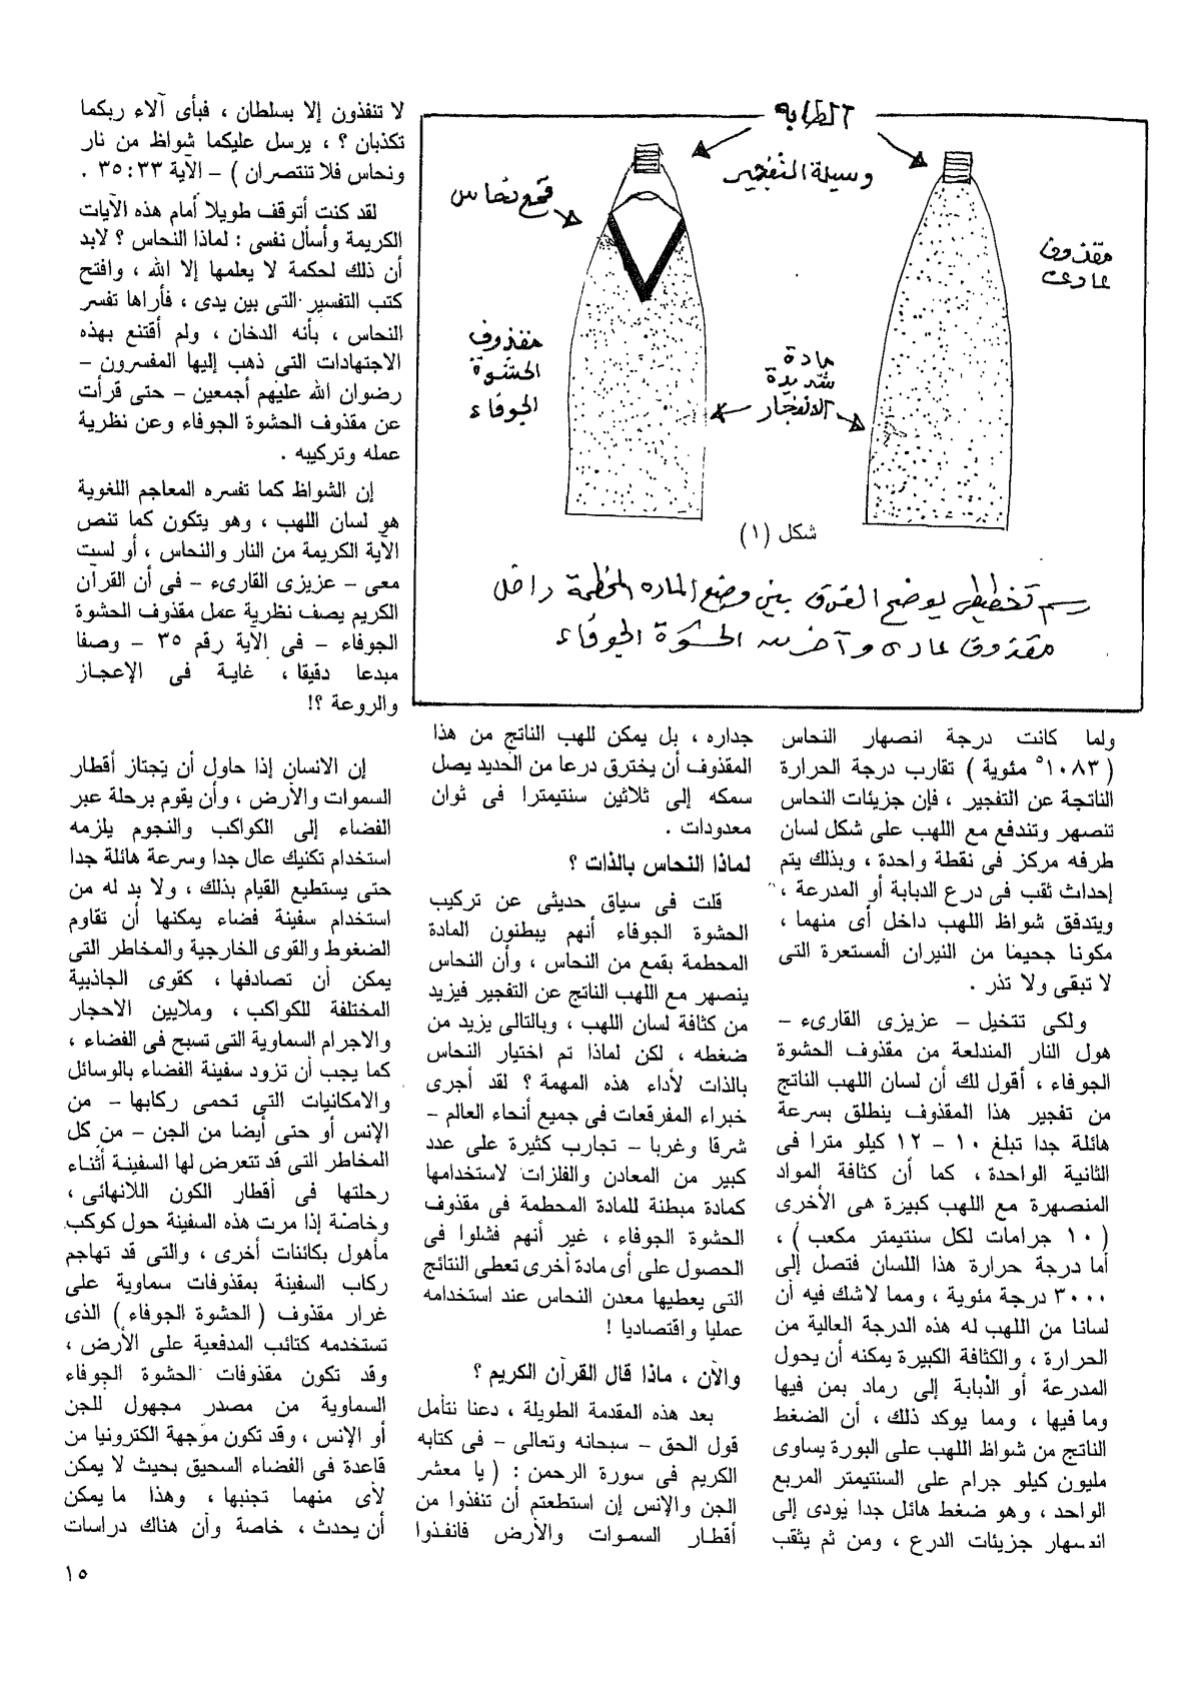 الطابه
وسيلة التفجير
قمع نحاس
مقذوف
عادى
مقذوف
الحشوة
الجوفاء
مادة
شديدة
الانفجار
شكل (١)
رسم تخطيطى يوضح الفرق بين وضع الماده المحطمة داخل
مقذوف عادى وآخر من الحشوة الجوفاء
ولما كانت درجة انصهار النحاس
( ١٠٨٣° مئوية ) تقارب درجة الحرارة
الناتجة عن التفجير ، فإن جزيئات النحاس
تنصهر وتندفع مع اللهب على شكل لسان
طرفه مركز فى نقطة واحدة ، وبذلك يتم
إحداث ثقب فى درع الدبابة أو المدرعة ،
ويتدفق شواظ اللهب داخل أى منهما ،
مكونا جحيما من النيران المستعرة التى
لا تبقى ولا تذر .
ولكى تتخيل – عزيزى القارىء –
هول النار المندلعة من مقذوف الحشوة
الجوفاء ، أقول لك أن لسان اللهب الناتج
من تفجير هذا المقذوف ينطلق بسرعة
هائلة جدا تبلغ ١٠ – ١٢ كيلو مترا فى
الثانية الواحدة ، كما أن كثافة المواد
المنصهرة مع اللهب كبيرة هى الأخرى
( ١٠ جرامات لكل سنتيمتر مكعب ) ،
أما درجة حرارة هذا اللسان فتصل إلى
٣٠٠٠ درجة مئوية ، ومما لاشك فيه أن
لسانا من اللهب له هذه الدرجة العالية من
الحرارة ، والكثافة الكبيرة يمكنه أن يحول
المدرعة أو الدبابة إلى رماد بمن فيها
وما فيها ، ومما يوكد ذلك ، أن الضغط
الناتج من شواظ اللهب على البورة يساوى
مليون كيلو جرام على السنتيمتر المربع
الواحد ، وهو ضغط هائل جدا يودى إلى
انصهار جزيئات الدرع ، ومن ثم يثقب
جداره ، بل يمكن للهب الناتج من هذا
المقذوف أن يخترق درعا من الحديد يصل
سمكه إلى ثلاثين سنتيمترا فى ثوان
معدودات .
لماذا النحاس بالذات ؟
قلت فى سياق حديثى عن تركيب
الحشوة الجوفاء أنهم يبطنون المادة
المحطمة بقمع من النحاس ، وأن النحاس
ينصهر مع اللهب الناتج عن التفجير فيزيد
من كثافة لسان اللهب ، وبالتالى يزيد من
ضغطه ، لكن لماذا تم اختيار النحاس
بالذات لأداء هذه المهمة ؟ لقد أجرى
خبراء المفرقعات فى جميع أنحاء العالم –
شرقا وغربا – تجارب كثيرة على عدد
كبير من المعادن والفلزات لاستخدامها
كمادة مبطنة للمادة المحطمة فى مقذوف
الحشوة الجوفاء ، غير أنهم فشلوا فى
الحصول على أى مادة أخرى تعطى النتائج
التى يعطيها معدن النحاس عند استخدامه
عمليا واقتصاديا !
والآن ، ماذا قال القرآن الكريم ؟
بعد هذه المقدمة الطويلة ، دعنا نتأمل
قول الحق – سبحانه وتعالى – فى كتابه
الكريم فى سورة الرحمن : ( يا معشر
الجن والإنس إن استطعتم أن تنفذوا من
أقطار السموات والأرض فانفذوا
لا تنفذون إلا بسلطان ، فبأى آلاء ربكما
تكذبان ؟ ، يرسل عليكما شواظ من نار
ونحاس فلا تنتصران ) – الآية ٣٣ : ٣٥ .
لقد كنت أتوقف طويلا أمام هذه الآيات
الكريمة وأسأل نفسى : لماذا النحاس ؟ لابد
أن ذلك لحكمة لا يعلمها إلا الله ، وافتح
كتب التفسير التى بين يدى ، فأراها تفسر
النحاس ، بأنه الدخان ، ولم أقتنع بهذه
الاجتهادات التى ذهب إليها المفسرون –
رضوان الله عليهم أجمعين – حتى قرأت
عن مقذوف الحشوة الجوفاء وعن نظرية
عمله وتركيبه .
إن الشواظ كما تفسره المعاجم اللغوية
هو لسان اللهب ، وهو يتكون كما تنص
الآية الكريمة من النار والنحاس ، أو لست
معى – عزيزى القارىء – فى أن القرآن
الكريم يصف نظرية عمل مقذوف الحشوة
الجوفاء – فى الآية رقم ٣٥ – وصفا
مبدعا دقيقا ، غاية فى الإعجاز
والروعة ؟!
إن الانسان إذا حاول أن يجتاز أقطار
السموات والأرض ، وأن يقوم برحلة عبر
الفضاء إلى الكواكب والنجوم يلزمه
استخدام تكنيك عال جدا وسرعة هائلة جدا
حتى يستطيع القيام بذلك ، ولا بد له من
استخدام سفينة فضاء يمكنها أن تقاوم
الضغوط والقوى الخارجية والمخاطر التى
يمكن أن تصادفها ، كقوى الجاذبية
المختلفة للكواكب ، وملايين الاحجار
والاجرام السماوية التى تسبح فى الفضاء ،
كما يجب أن تزود سفينة الفضاء بالوسائل
والامكانيات التى تحمى ركابها – من
الإنس أو حتى أيضا من الجن – من كل
المخاطر التى قد تتعرض لها السفينة أثناء
رحلتها فى أقطار الكون اللانهائى ،
وخاصة إذا مرت هذه السفينة حول كوكب
مأهول بكائنات أخرى ، والتى قد تهاجم
ركاب السفينة بمقذوفات سماوية على
غرار مقذوف ( الحشوة الجوفاء ) الذى
تستخدمه كتائب المدفعية على الأرض ،
وقد تكون مقذوفات الحشوة الجوفاء
السماوية من مصدر مجهول للجن
أو الإنس ، وقد تكون موجهة الكترونيا من
قاعدة فى الفضاء السحيق بحيث لا يمكن
لأى منهما تجنبها ، وهذا ما يمكن
أن يحدث ، خاصة وأن هناك دراسات
١٥